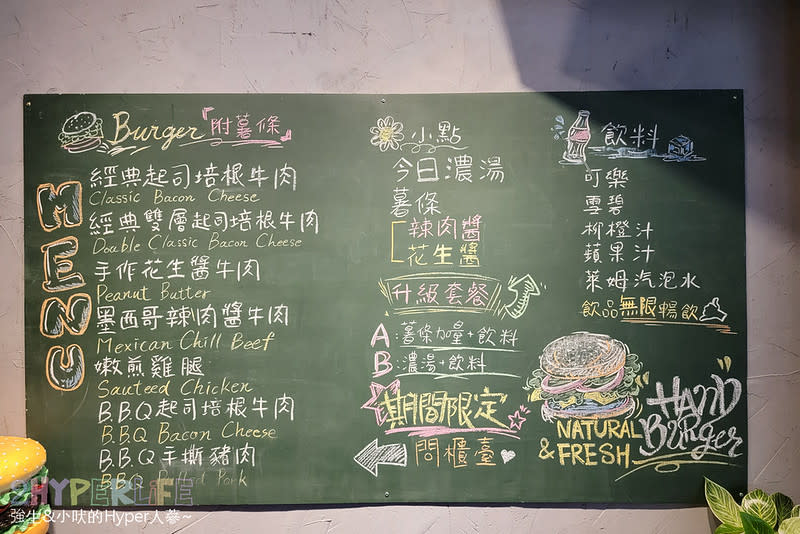 MENU
Burger「附薯條」
經典起司培根牛肉
Classic Bacon Cheese
經典雙層起司培根牛肉
Double Classic Bacon Cheese
手作花生醬牛肉
Peanut Butter
墨西哥辣肉醬牛肉
Mexican Chill Beef
嫩煎雞腿
Sauteed Chicken
B.B.Q起司培根牛肉
B.B.Q Bacon Cheese
B.B.Q手撕豬肉
B.B.Q Pulled Pork
小點
今日濃湯
薯條
辣肉醬
花生醬
升級套餐
A:薯條加量+飲料
B:濃湯+飲料
期間限定
問櫃臺
飲料
可樂
雪碧
柳橙汁
蘋果汁
萊姆汽泡水
飲品無限暢飲
NATURAL
& FRESH
HAND
BURGER
2HYPERLIFE
強生&小吠的Hyper人蔘~